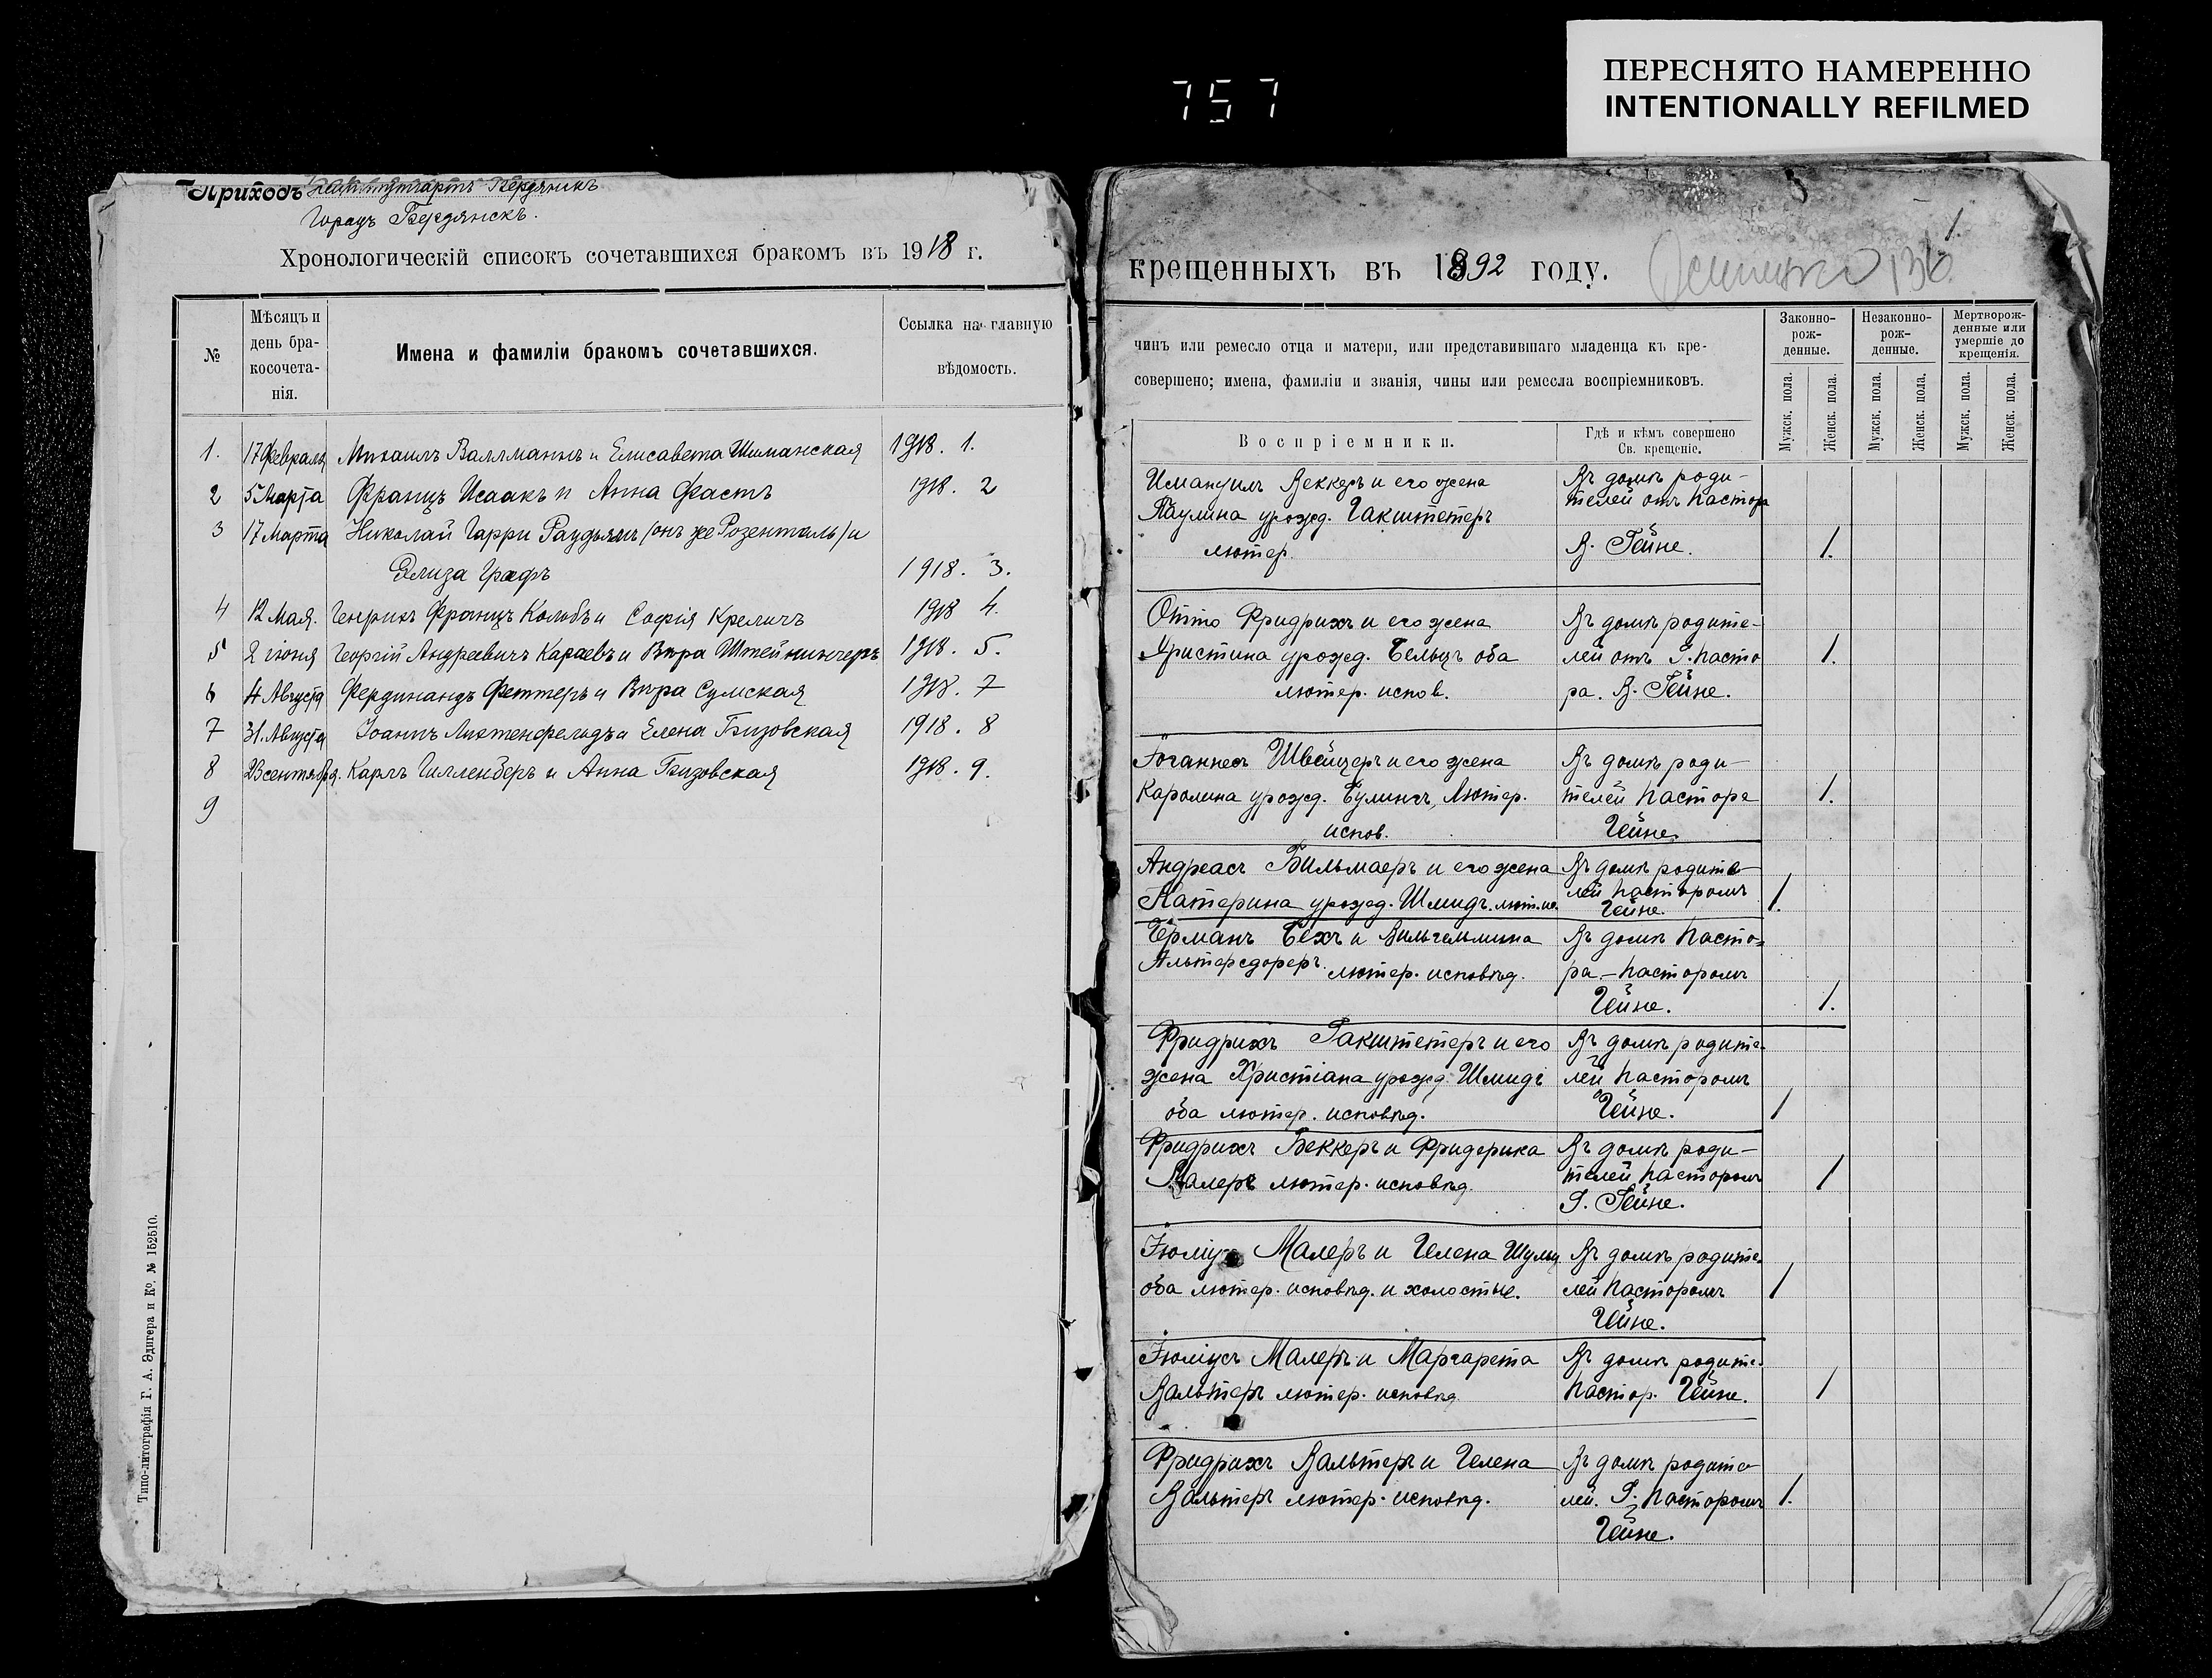 757
ПЕРЕСНЯТО НАМЕРЕННО
INTENTIONALLY REFILMED
Приходъ Бердянскъ
Городъ Бердянскъ.
Хронологическій списокъ сочетавшихся бракомъ въ 1918 г.
№
Мѣсяцъ и
день бра-
косочета-
нія.
Имена и фамиліи бракомъ сочетавшихся.
Ссылка на главную
вѣдомость.
1. 17 Февраля Михаилъ Валлманнъ и Елисавета Шиманская 1918. 1.
2 5 Марта Францъ Исаакъ и Анна Фастъ 1918. 2
3 17 Марта Николай Гарри Раудьялъ /онъ же Розенталь/ и
Элиза Графъ 1918. 3.
4 12 Мая. Генрихъ Францъ Колобъ и Софія Креличъ 1918 4.
5 2 іюня Георгій Андреевичъ Караевъ и Вѣра Штейнингеръ 1918. 5.
6 4 Августа Фердинандъ Феттеръ и Вѣра Сумская 1918. 7
7 31. Августа Іоаннъ Лихтенфельдъ и Елена Бизовская 1918. 8
8 23 сентября. Карлъ Гилленберъ и Анна Бизовская 1918. 9.
9
Типо-литографія Г. А. Эдигера и Ко. № 152510.
1.
крещенныхъ въ 1892 году. 136.
чинъ или ремесло отца и матери, или представившаго младенца къ кре-
совершено; имена, фамиліи и званія, чины или ремесла воспріемниковъ.
Воспріемники.
Гдѣ и кѣмъ совершено
Св. крещеніе.
Законно-
рож-
денные.
Незаконно-
рож-
денные.
Мертворож-
денные или
умершіе до
крещенія.
Мужск. пола.
Женск. пола.
Мужск. пола.
Женск. пола.
Мужск. пола.
Женск. пола.
Имануилъ Веккеръ и его жена Въ домѣ роди-
Паулина урожд. Гакштетеръ телей отъ пастора
лютер. В. Гейне. 1.
Отто Фридрихъ и его жена Въ домѣ родите-
Христина урожд. Бельцъ оба лей отъ Г. пасто 1.
лютер. испов. ра. В. Гейне.
Іоганнесъ Швейцеръ и его жена Въ домѣ роди-
Каролина урожд. Булингъ, Лютер. телей пастора 1.
испов. Гейне.
Андреасъ Бильмаеръ и его жена Въ домѣ родите-
Катерина урожд. Шмидъ. лют. ис. лей пасторомъ 1.
Гейне.
Германъ Бехъ и Вильгельмина Въ домѣ пасто-
Альтерсдореръ. лютер. исповѣд. ра - пасторомъ
Гейне. 1.
Фридрихъ Гакштетеръ и его Въ домѣ родите-
жена Христіана урожд. Шмидъ лей пасторомъ
оба лютер. исповѣд. Гейне. 1
Фридрихъ Беккеръ и Фридерика Въ домѣ роди-
Малеръ лютер. исповѣд. телей пасторомъ 1
Г. Гейне.
Іюліусъ Малеръ и Гелена Шульц Въ домѣ родите-
оба лютер. исповѣд. и холостые. лей пасторомъ 1
Гейне.
Іюліусъ Малеръ и Маргарета Въ домѣ родите-
Вальтеръ лютер. исповѣд. пастор. Гейне. 1
Фридрихъ Вальтеръ и Гелена Въ домѣ родите-
Вальтеръ лютер. исповѣд. лей. Г. пасторомъ 1.
Гейне.